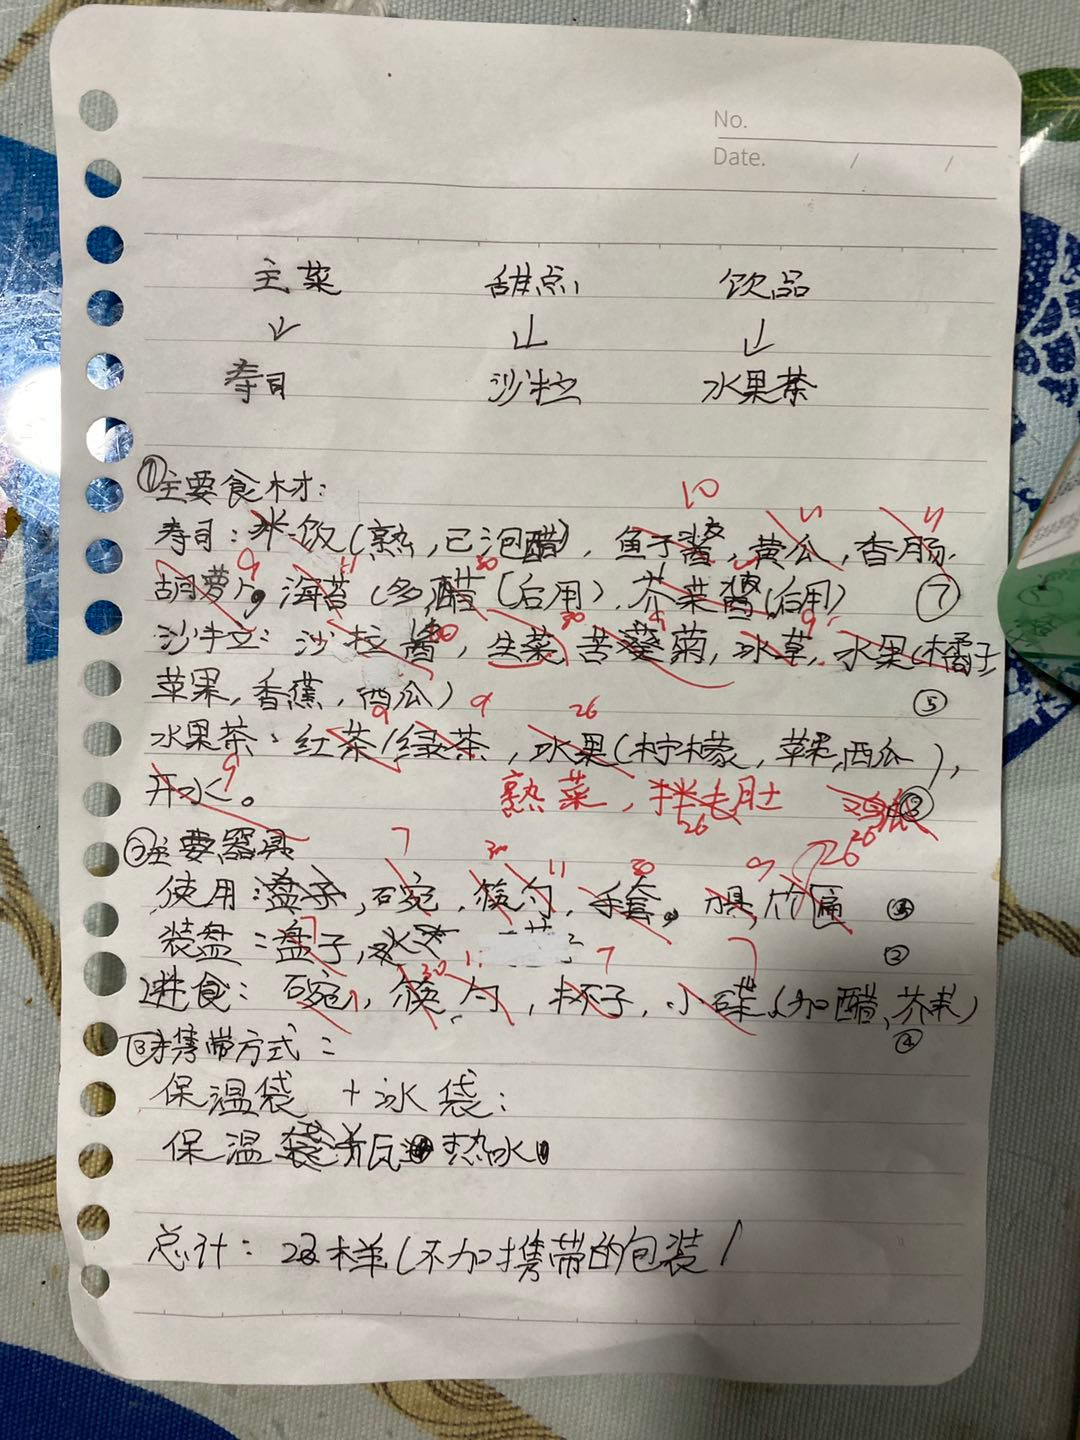 No.
Date. / /
主菜 甜点 饮品
↓ ↓ ↓
寿司 沙拉 水果茶
①主要食材:
10
寿司:米饭(熟,已泡醋),鱼子酱,黄瓜,香肠,
11 11
9 11 30
胡萝卜,海苔(多,醋(后用),芥菜酱(后用) ⑦
30 30 9 9
沙拉:沙拉酱,生菜,苦菊,冰草,水果(橘子
苹果,香蕉,西瓜) ⑤
9 9 26
水果茶:红茶/绿茶,水果(柠檬,苹果,西瓜),
9
开水。 熟菜,拌毛肚 ③
26 26
②主要器具
7 30 11 30 9 26
使用:盘子,碗,筷,勺,手套,刀具,竹匾
装盘:盘子, ②
7 30 7 7
进食:碗,筷,勺,杯子,小碟(加醋、芥末)
④
③携带方式:
保温袋+冰袋:
保温瓶 热水
总计: 样(不加携带的包装)